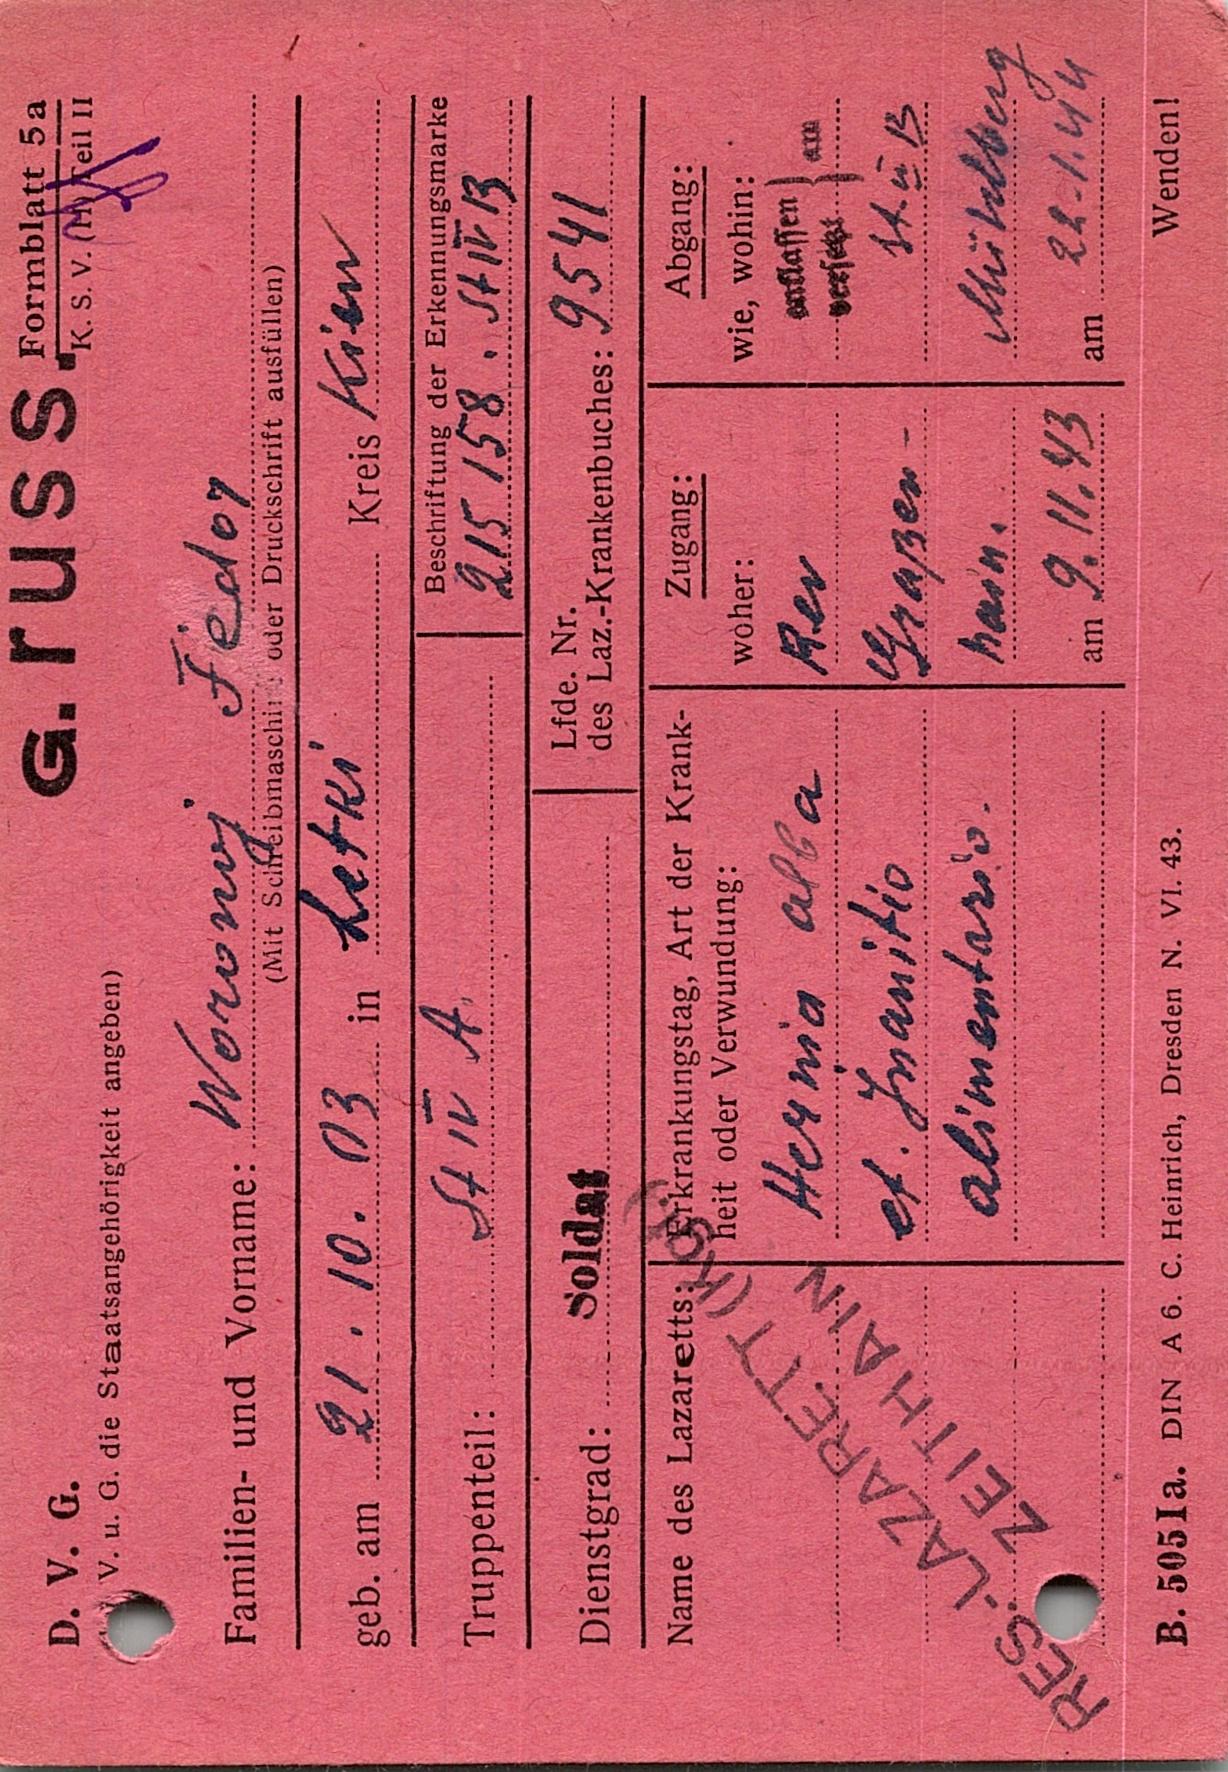 D. V. G.
G. russ.
Formblatt 5a
K. S. V. (H) Teil II
V. u. G. die Staatsangehörigkeit angeben)
Familien- und Vorname: Woronyj Fedor
(Mit Schreibmaschine oder Druckschrift ausfüllen)
geb. am 21. 10. 03 in Letki Kreis Kiew
Truppenteil: St IV A.
Beschriftung der Erkennungsmarke
215158. St IV B
Dienstgrad: Soldat
Lfde. Nr.
des Laz.-Krankenbuches: 9541
Name des Lazaretts:
RES.-LAZARETT (Kgf.)
ZEITHAIN
Erkrankungstag, Art der Krank-
heit oder Verwundung:
Hernia alba
et. Inanitio
alimentario.
Zugang:
woher:
Rev
Graßen-
hain.
am 9. 11. 43
Abgang:
wie, wohin:
entlassen
versetzt } am
St. B
Mühlberg
am 22.1.44
B. 5051a. DIN A 6. C. Heinrich, Dresden N. VI. 43.
Wenden!